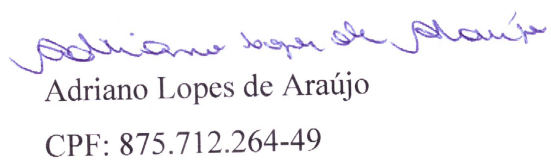 Adriano Lopes de Araújo
Adriano Lopes de Araújo
CPF: 875.712.264-49